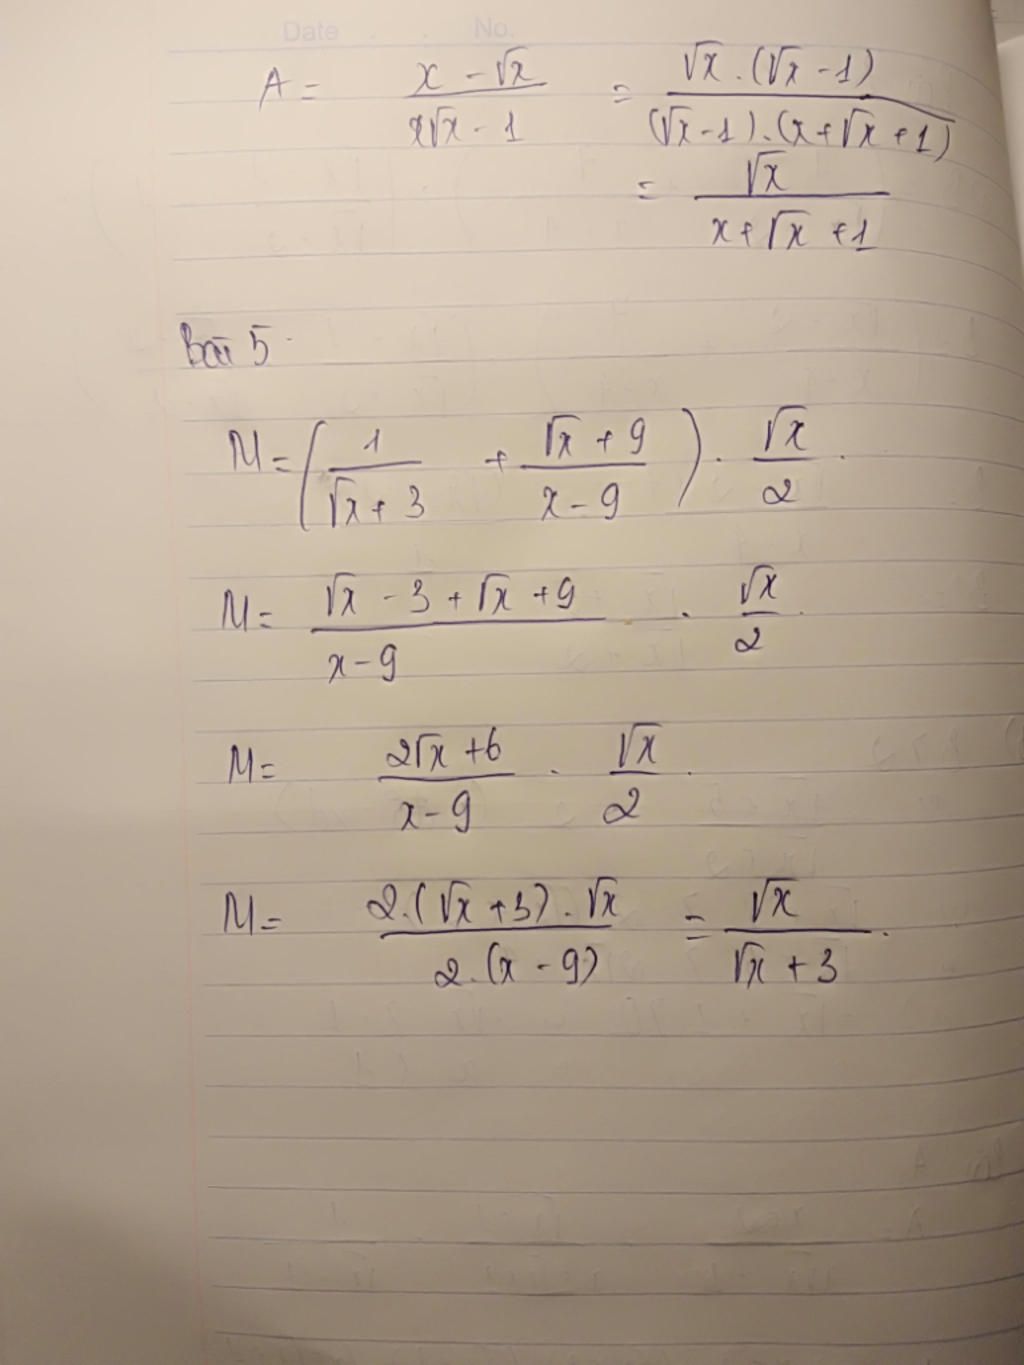 Date No.
A = \frac{x - \sqrt{x}}{x\sqrt{x} - 1} = \frac{\sqrt{x} . (\sqrt{x} - 1)}{(\sqrt{x} - 1) . (x + \sqrt{x} + 1)}
= \frac{\sqrt{x}}{x + \sqrt{x} + 1}
Bài 5
M = \left( \frac{1}{\sqrt{x} + 3} + \frac{\sqrt{x} + 9}{x - 9} \right) . \frac{\sqrt{x}}{2} .
M = \frac{\sqrt{x} - 3 + \sqrt{x} + 9}{x - 9} . \frac{\sqrt{x}}{2} .
M = \frac{2\sqrt{x} + 6}{x - 9} . \frac{\sqrt{x}}{2} .
M = \frac{2 . (\sqrt{x} + 3) . \sqrt{x}}{2 . (x - 9)} = \frac{\sqrt{x}}{\sqrt{x} + 3} .